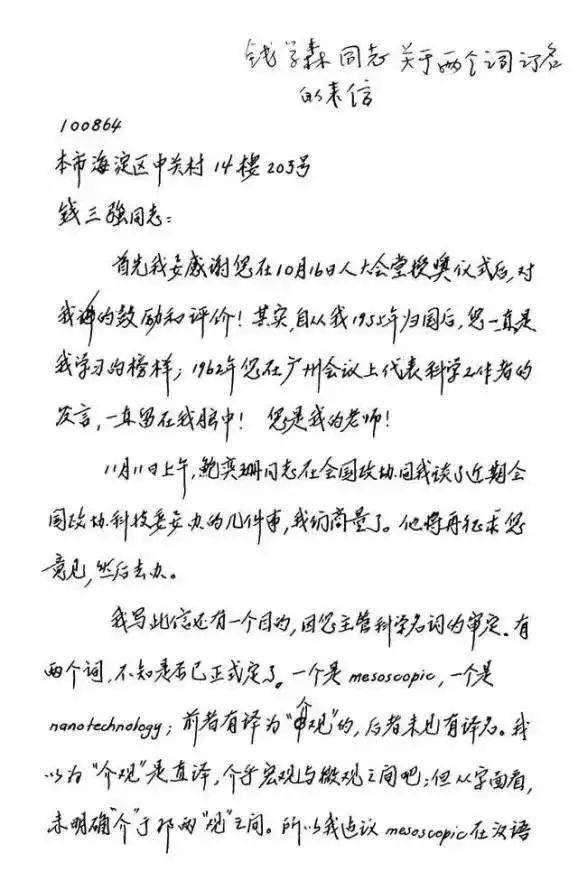 钱学森同志关于两个词订名
的来信
100864
本市海淀区中关村14楼203号
钱三强同志:
首先我要感谢您在10月16日人大会堂授奖仪式后,对
我讲的鼓励和评价!其实,自从我1955年归国后,您一直是
我学习的榜样;1962年您在广州会议上代表科学工作者的
发言,一直留在我脑中!您是我的老师!
11月11日上午,鲍奕珊同志在全国政协同我谈了近期全
国政协科技委要办的几件事,我们商量了。他将再征求您
意见,然后去办。
我写此信还有一个目的,因您主管科学名词的审定。有
两个词,不知是否已正式定了。一个是mesoscopic,一个是
nanotechnology;前者有译为“介观”的,后者未见有译名。我
以为“介观”是直译,介乎宏观与微观之间吧;但从字面看,
未明确“介”于那两“观”之间。所以我建议mesoscopic在汉语